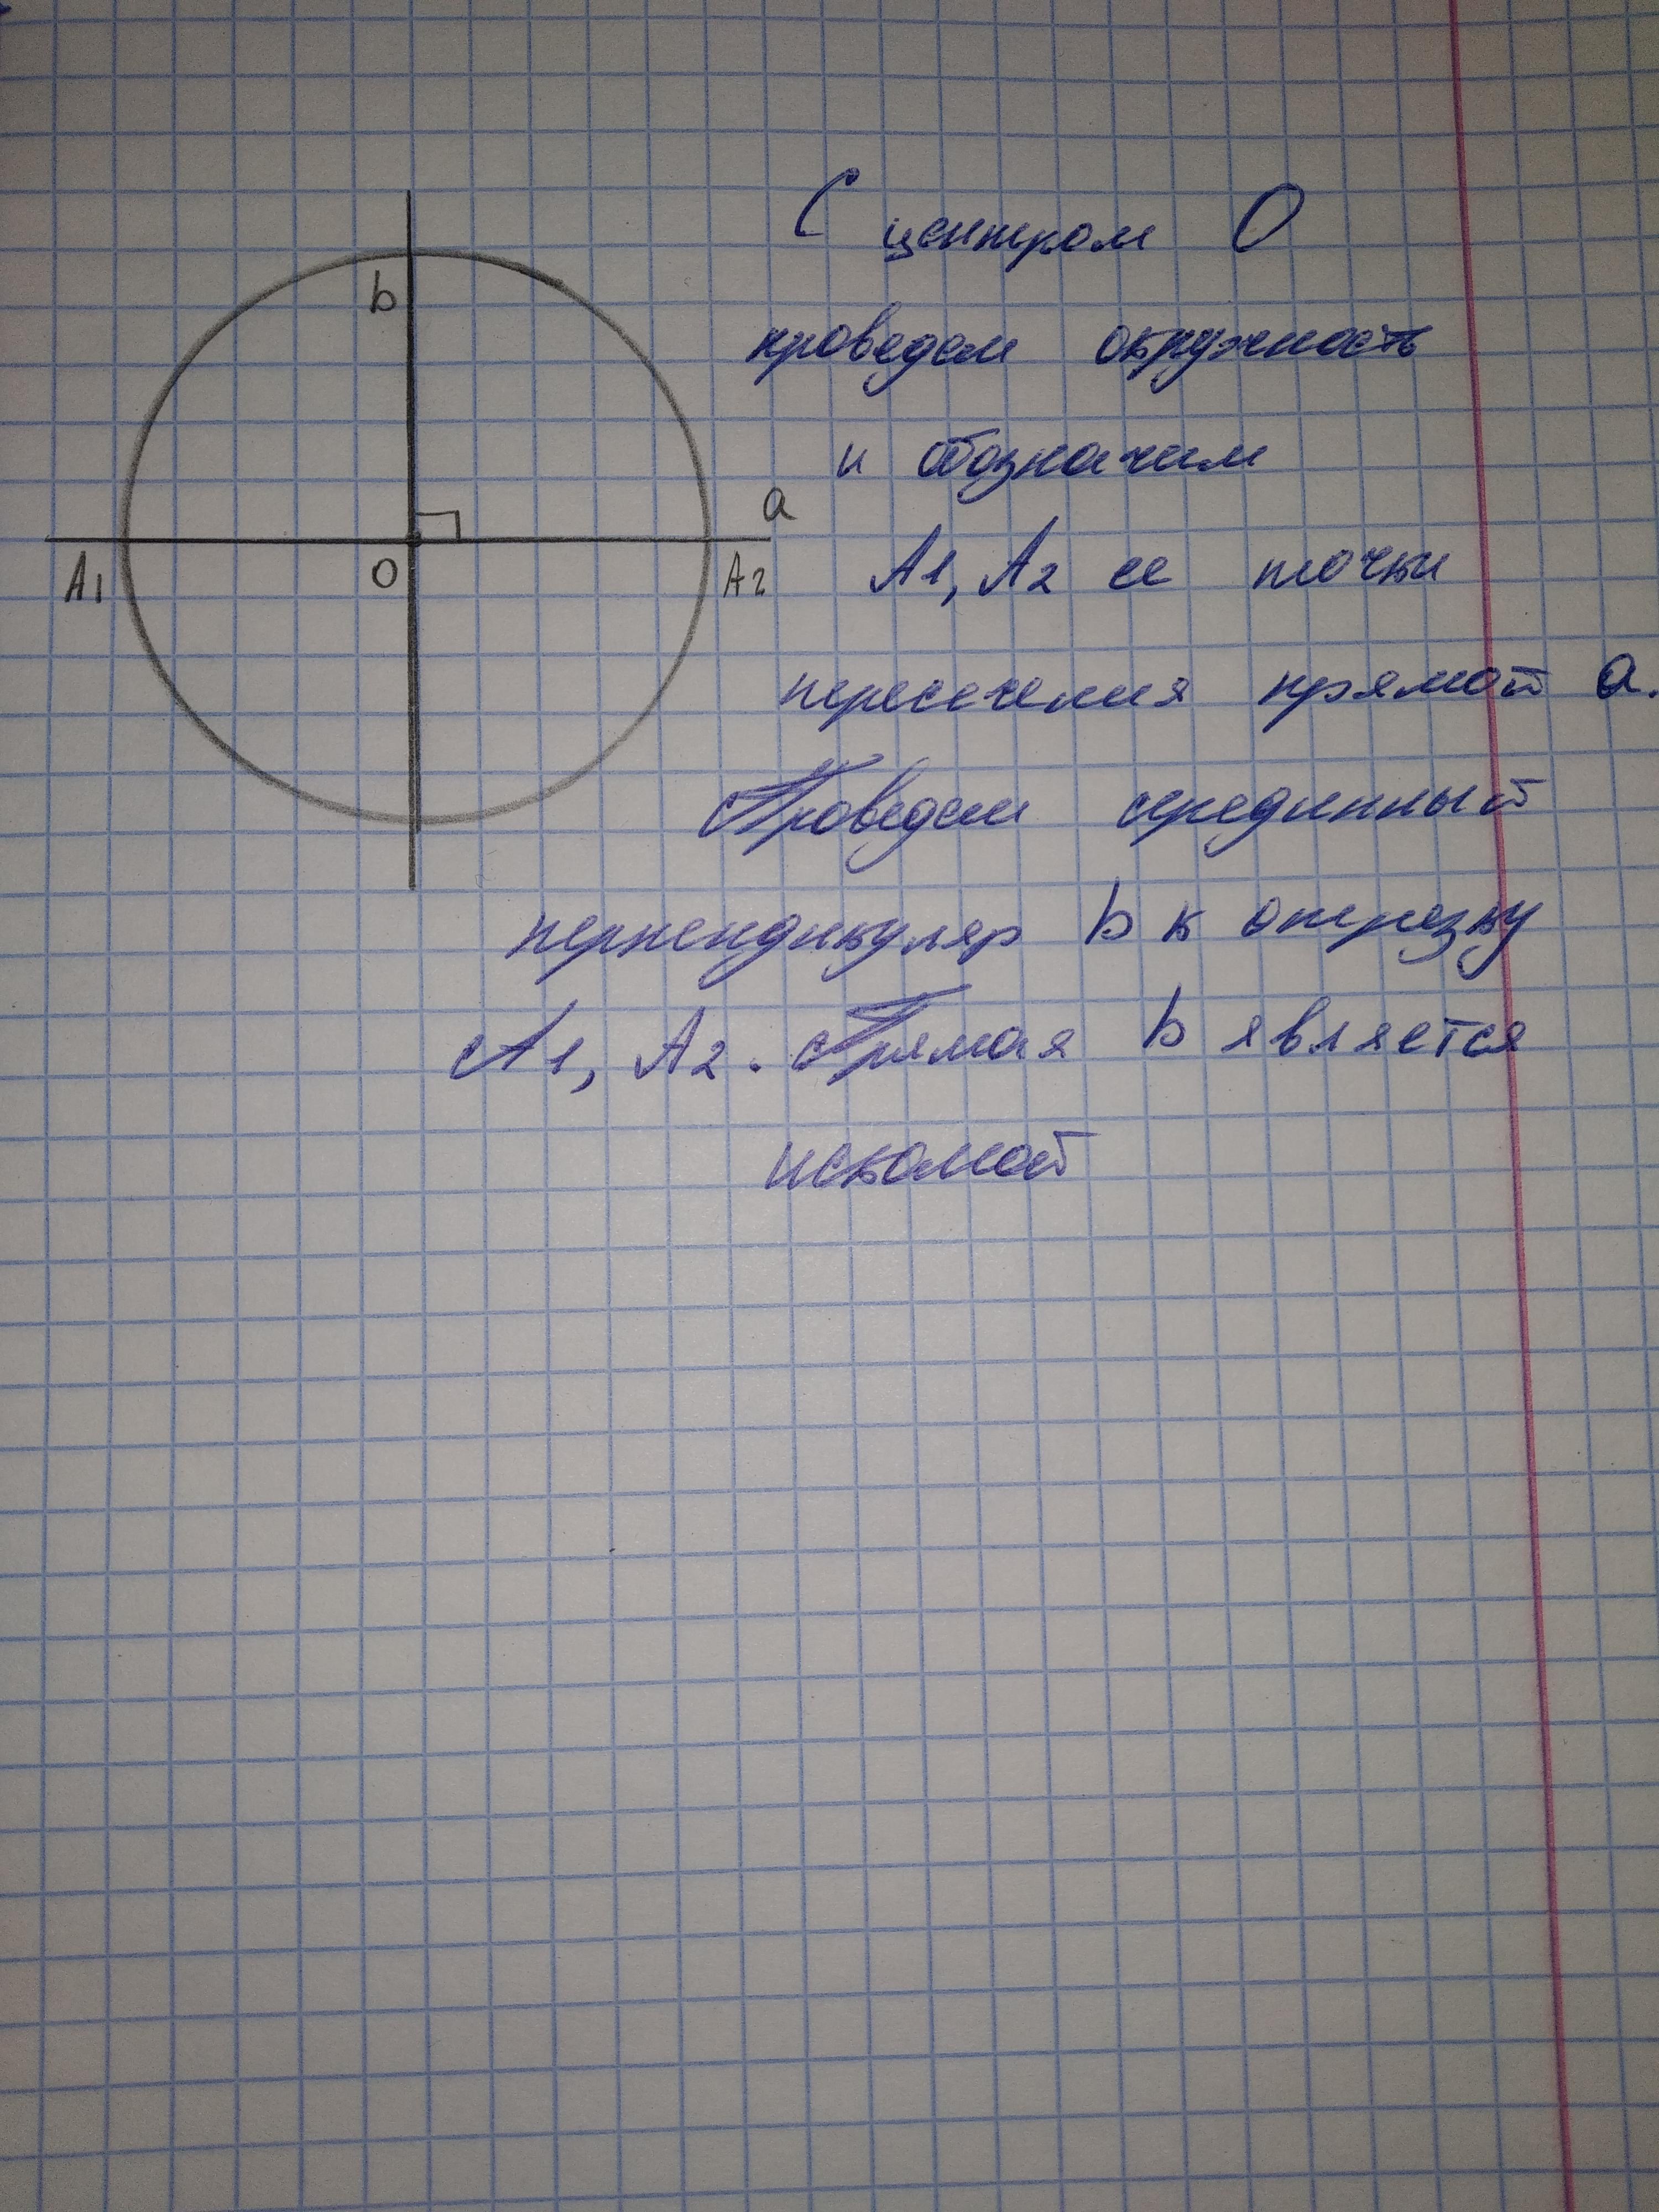 С центром О
проведем окружность
и обозначим
А1, А2 ее точки
пересечения прямой а.
Проведем серединный
перпендикуляр b к отрезку
А1, А2. Прямая b является
искомой
b
a
A1
O
A2